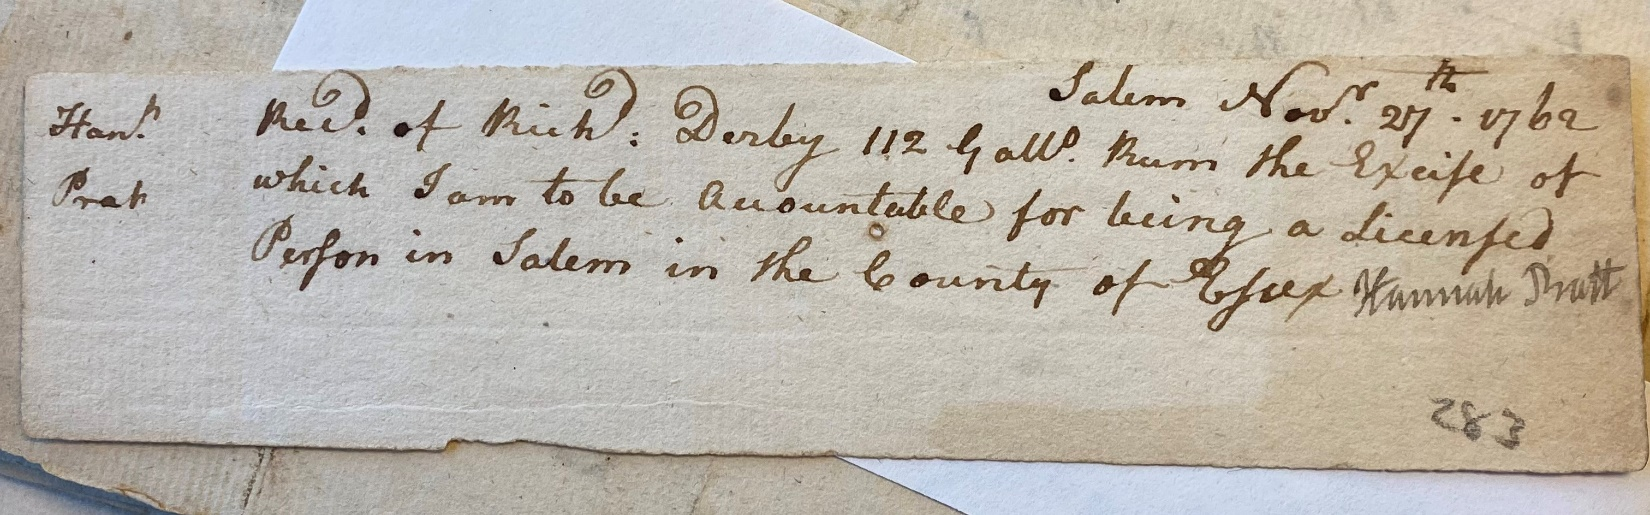 Salem Novr. 27th. 1762
Hanh. Recd. of Richd: Derby 112 Galls. Rum the Excise of
Prat which I am to be Accountable for being a Licensed
Person in Salem in the County of Essex Hannah Pratt
283